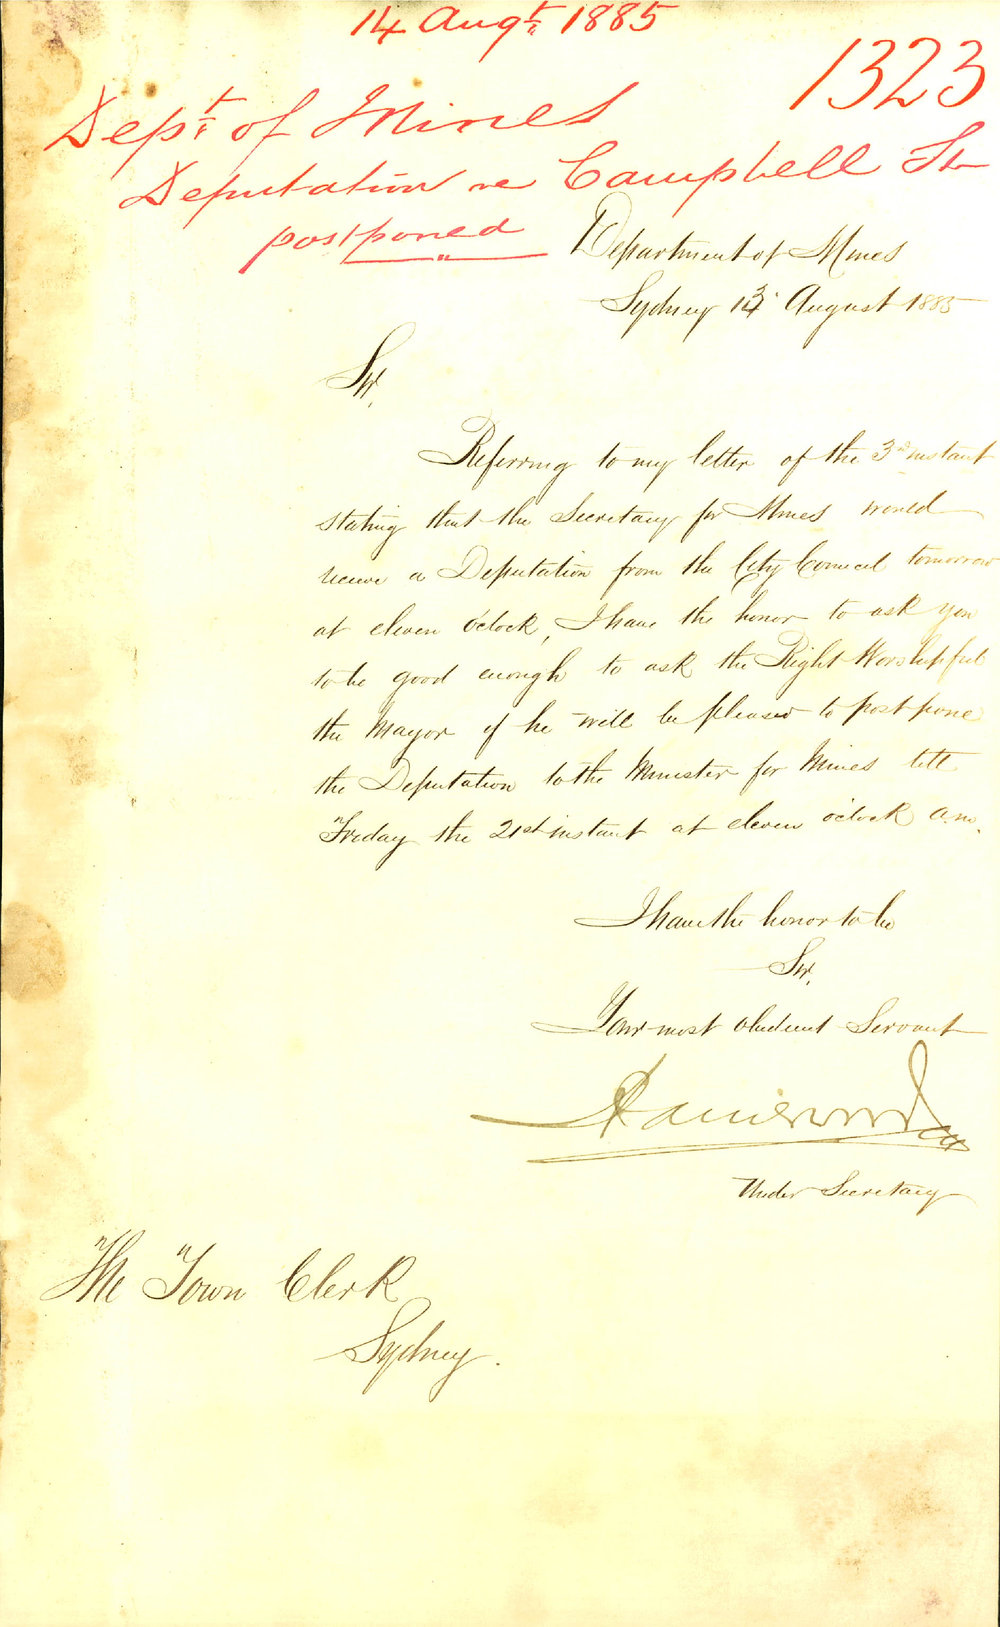 14 Augt. 1885
1323
Dept. of Mines
Deputation re Campbell St
postponed
Department of Mines
Sydney 13 August 1885
Sir,
Referring to my letter of the 3rd instant
stating that the Secretary for Mines would
receive a Deputation from the City Council tomorrow
at eleven o'clock, I have the honor to ask you
to be good enough to ask the Right Worshipful
the Mayor if he will be pleased to postpone
the Deputation to the Minister for Mines till
Friday the 21st instant at eleven o'clock a.m.
I have the honor to be
Sir,
Your most obedient Servant
Under Secretary
The Town Clerk
Sydney.